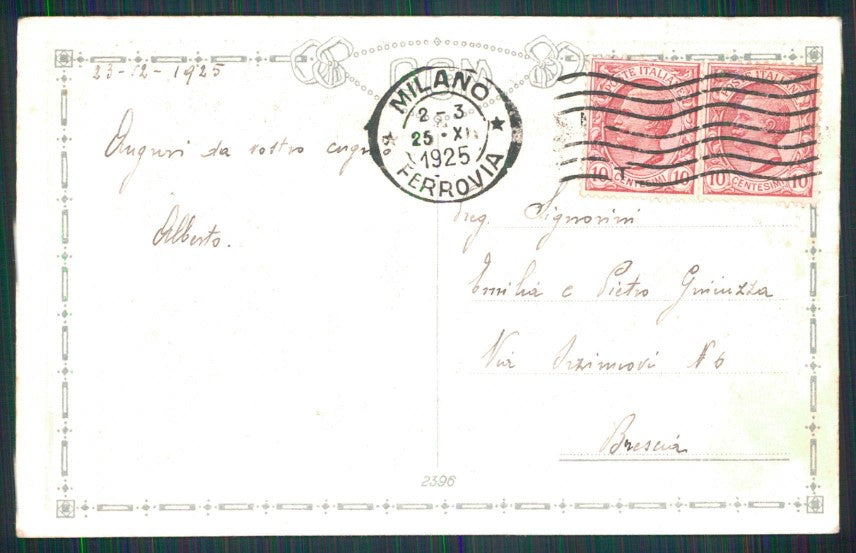 23-12-1925
Auguri da vostro
Alberto.
MILANO
2-3
25 · XII
1925
FERROVIA
POSTE ITALIANE
10 CENTESIMI 10
POSTE ITALIANE
10 CENTESIMI 10
Signorini
Emilia e Pietro
Via N 6
Brescia
2396